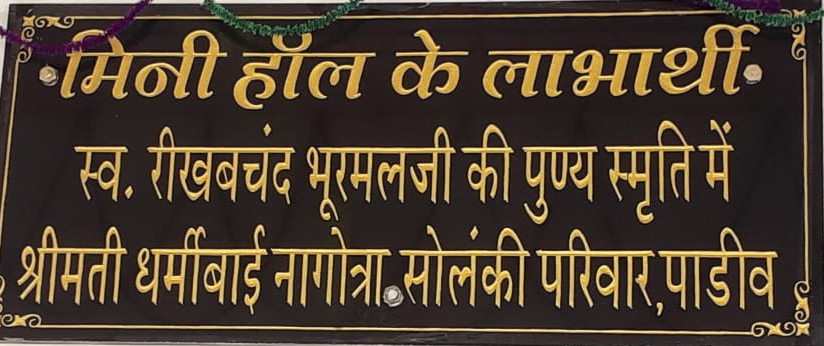 मिनी हॉल के लाभार्थी
स्व. रीखबचंद भूरमलजी की पुण्य स्मृति में
श्रीमती धर्मीबाई नागोत्रा सोलंकी परिवार,पाडीव